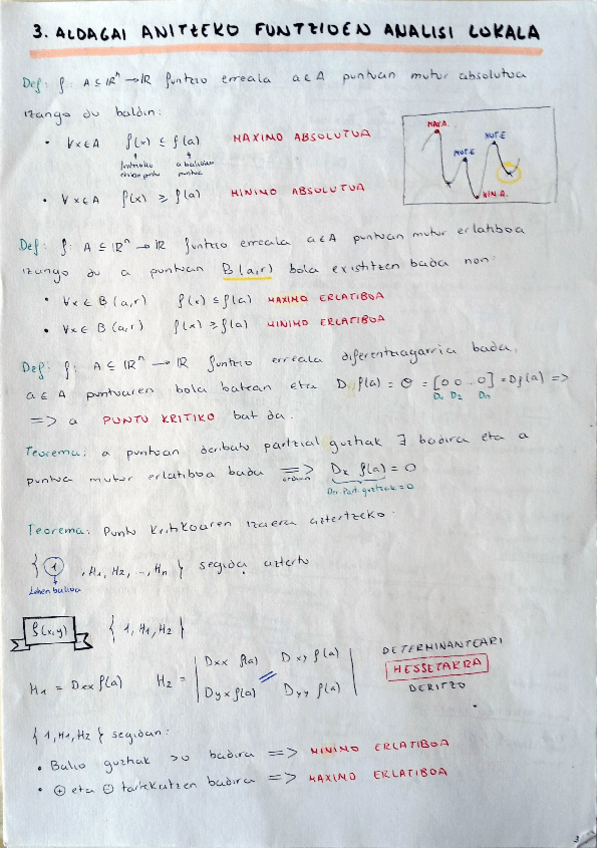 3. ALDAGAI ANITZEKO FUNTZIOEN ANALISI LOKALA
Def: f: A ⊆ ℝⁿ → ℝ funtzio erreala a∈A puntuan mutur absolutua
izango du baldin:
• ∀x∈A f(x) ≤ f(a) MAXIMO ABSOLUTUA
funtzioko edozein puntu
a balioan puntua
• ∀x∈A f(x) ≥ f(a) MINIMO ABSOLUTUA
MAX.A.
MUT.E
MUT.E
MIN.A.
Def: f: A ⊆ ℝⁿ → ℝ funtzio erreala a∈A puntuan mutur erlatiboa
izango du a puntuan B(a,r) bola existitzen bada non:
• ∀x∈B(a,r) f(x) ≤ f(a) MAXIMO ERLATIBOA
• ∀x∈B(a,r) f(x) ≥ f(a) MINIMO ERLATIBOA
Def: f: A ⊆ ℝⁿ → ℝ funtzio erreala diferentziagarria bada,
a∈A puntuaren bola batean eta D f(a) = Θ = [0 0 ... 0] = Df(a) =>
D₁ D₂ Dn
=> a PUNTU KRITIKO bat da.
Teorema: a puntuan deribatu partzial guztiak ∃ badira eta a
puntua mutur erlatiboa bada => Dk f(a) = 0
orduan
Der. Part. guztiak = 0
Teorema: Puntu kritikoaren izaera aztertzeko:
{ 1 , H₁, H₂, ..., Hn } segida aztertu
Lehen balioa
f(x,y) { 1, H₁, H₂ }
H₁ = Dxx f(a) H₂ = | Dxx f(a) Dxy f(a) |
| Dyx f(a) Dyy f(a) |
DETERMINANTEARI
HESSETARRA
DERITZO
{ 1, H₁, H₂ } segidan:
• Balio guztiak >0 badira => MINIMO ERLATIBOA
• ⊕ eta ⊖ tartekatzen badira => MAXIMO ERLATIBOA
3